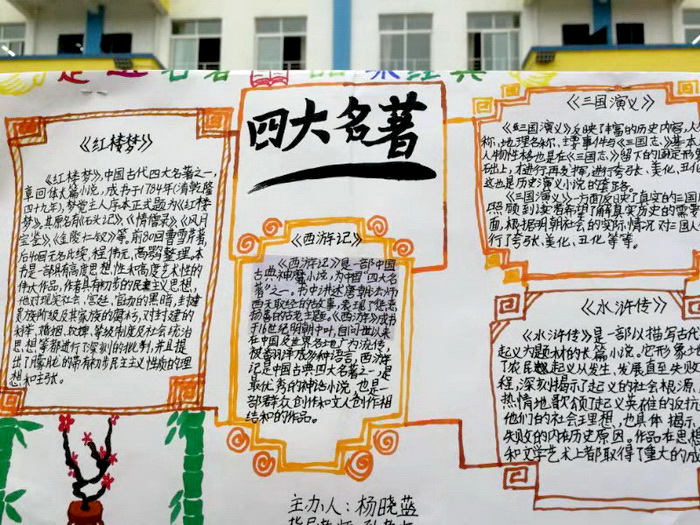 四大名著
《红楼梦》
《红楼梦》,中国古代四大名著之一,
章回体长篇小说,成书于1784年(清乾隆
四十九年),梦觉主人序本正式题为《红楼
梦》,其原名有《石头记》、《情僧录》、《风月
宝鉴》、《金陵十二钗》等,前80回曹雪芹著,
后40回无名氏续,程伟元、高鹗整理。本
书是一部具有高度思想性和高度艺术性的
伟大作品,作者具有初步的民主主义思想,
他对现实社会、宫廷、官场的黑暗,封建
贵族阶级及其家族的腐朽,对封建的
科举、婚姻、奴婢、等级制度及社会统治
思想等都进行了深刻的批判,并且提
出了朦胧的带有初步民主主义性质的理
想和主张。
《西游记》
《西游记》是一部中国
古典神魔小说,为中国“四大名
著”之一。书中讲述唐朝法师
西天取经的故事,表现了惩恶
扬善的古老主题。《西游记》成书
于16世纪明朝中叶,自问世以来
在中国及世界各地广为流传,
被翻译成多种语言。西游
记是中国古典四大名著之一,是
最优秀的神话小说,也是一
部群众创作和文人创作相
结和的作品。
《三国演义》
《三国演义》反映了丰富的历史内容,人
称,地理名称、主要事件与《三国志》基本
人物性格也是在《三国志》留下的固定形
础上,才进行再发挥,进行夸张、美化、丑化
这也是历史演义小说的套路。
《三国演义》一方面反映了真实的三国
照顾到读者希望了解真实历史的需
面,根据明朝社会的实际情况对三国
行了夸张、美化、丑化等等。
《水浒传》
《水浒传》是一部以描写古代
起义为题材的长篇小说。它形象
了农民起义从发生、发展直至失败
程,深刻揭示了起义的社会根源,
热情地歌颂了起义英雄的反抗
他们的社会理想,也具体揭示
失败的内在历史原因。作品在思想
和文学艺术上都取得了重大的成
主办人:杨晓蓝